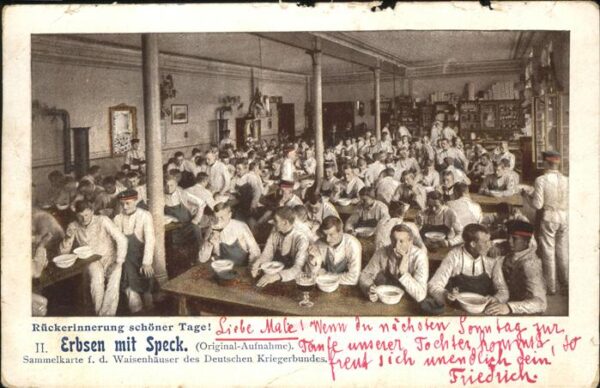 Rückerinnerung schöner Tage!
II. Erbsen mit Speck. (Original-Aufnahme).
Sammelkarte f. d. Waisenhäuser des Deutschen Kriegerbundes.
Liebe Male! Wenn du nächsten Sonntag zur
Taufe unserer Tochter kommst, so
freut sich unendlich dein,
Friedrich.